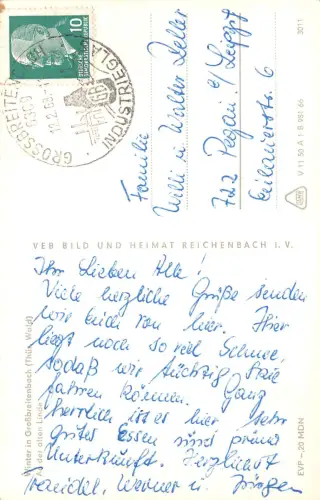 10
DEUTSCHE DEMOKRATISCHE REPUBLIK
GROSSBREITENBACH
6309
12.2.68
INDUSTRIE
Familie
Willi u Walter Zeller
722 Pegau b/Leipzg
Eulauerstr. 6
3011
V 11 50 A 1 B 981 66
VEB BILD UND HEIMAT REICHENBACH I. V.
Ihr Lieben Alle!
Viele herzliche Grüße senden
wir Euch von hier. Hier
liegt noch so viel Schnee,
sodaß wir tüchtig Skie
fahren können. Ganz
herrlich ist es hier sehr
gutes Essen und prima
Unterkunft. Herzlichst
Traudel, Werner u Jürgen
Winter in Großbreitenbach (Thür. Wald)
An der alten Linde
EVP -,20 MDN